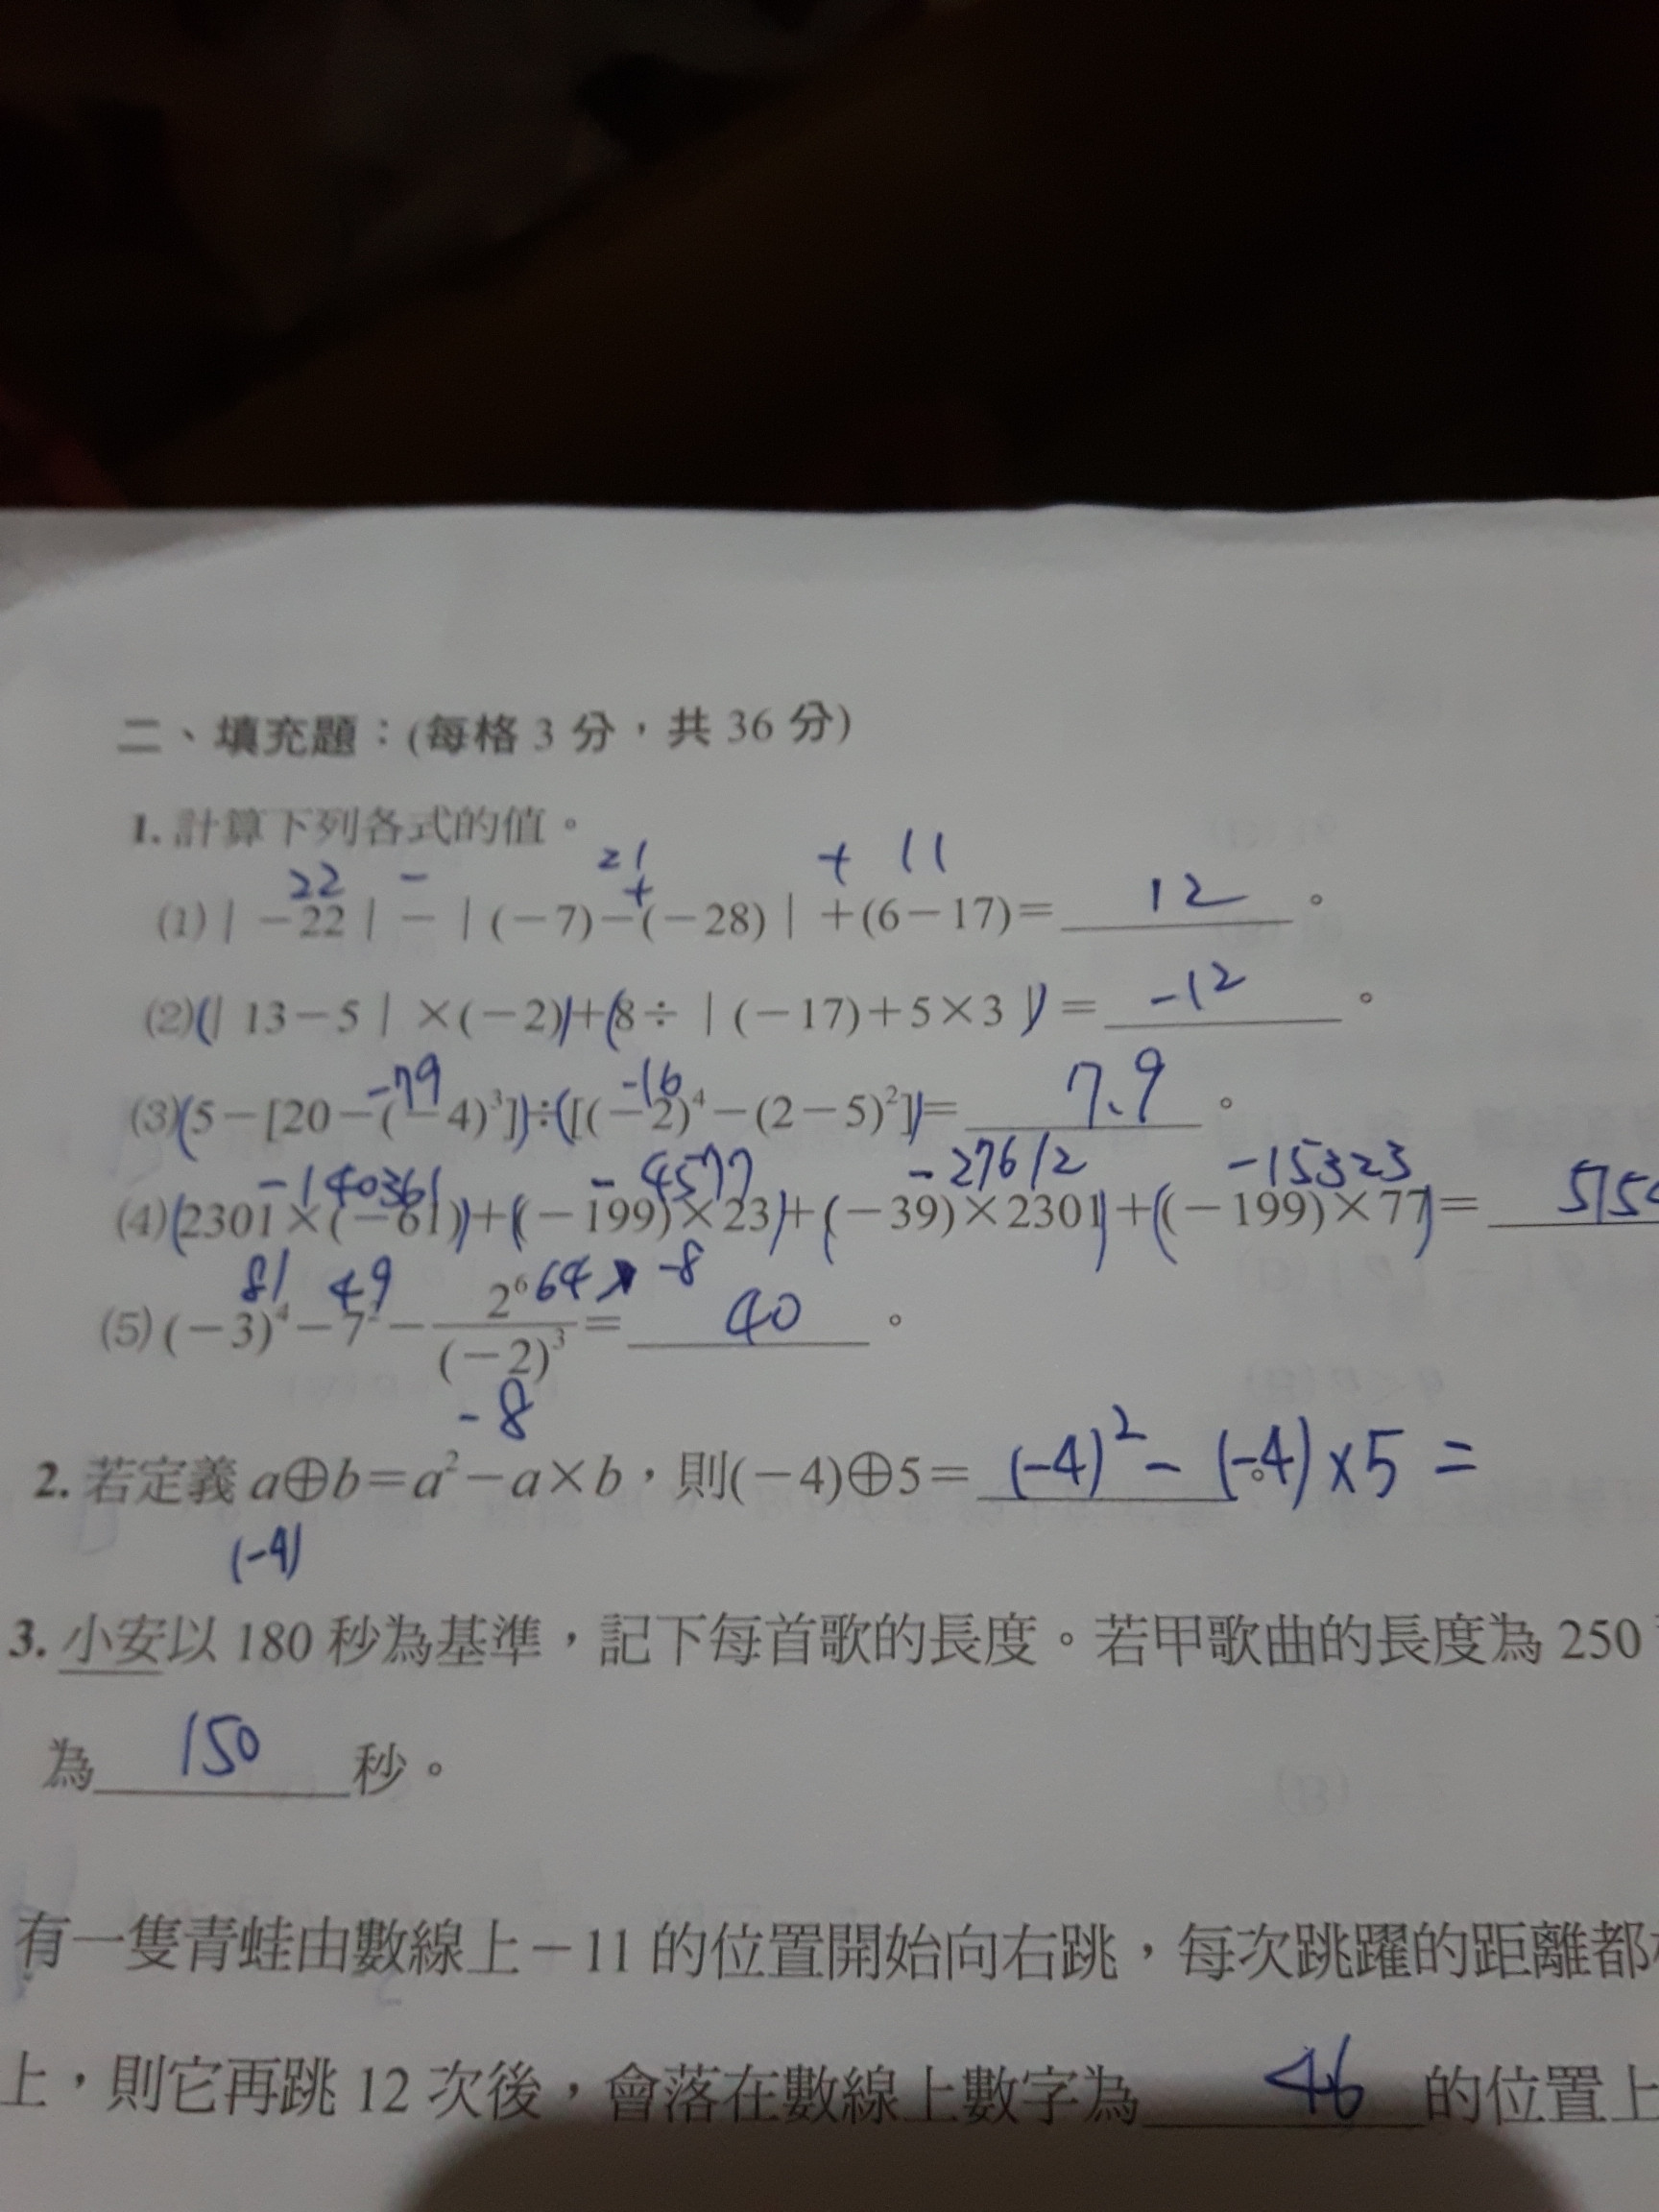 二、填充題：(每格 3 分，共 36 分)
1. 計算下列各式的值。
22 － 21 + + 11
(1)｜－22｜－｜(－7)－(－28)｜＋(6－17)＝ 12 。
(2)(｜13－5｜×(－2))＋(8÷｜(－17)＋5×3｜)＝ －12 。
－79 －16
(3)(5－[20－(－4)³])÷([(－2)⁴－(2－5)²])＝ 7.9 。
－140361 －4577 －27612 －15323
(4)(2301×(－61))＋((－199)×23)＋(－39)×2301)＋((－199)×77)＝ 515
81 49 64 －8
(5)(－3)⁴－7²－2⁶/(－2)³＝ 40 。
－8
2. 若定義 a⊕b＝a²－a×b，則(－4)⊕5＝ (－4)²－(－4)×5＝ 。
(－4)
3. 小安以 180 秒為基準，記下每首歌的長度。若甲歌曲的長度為 250
為 150 秒。
有一隻青蛙由數線上－11 的位置開始向右跳，每次跳躍的距離都
上，則它再跳 12 次後，會落在數線上數字為 46 的位置上